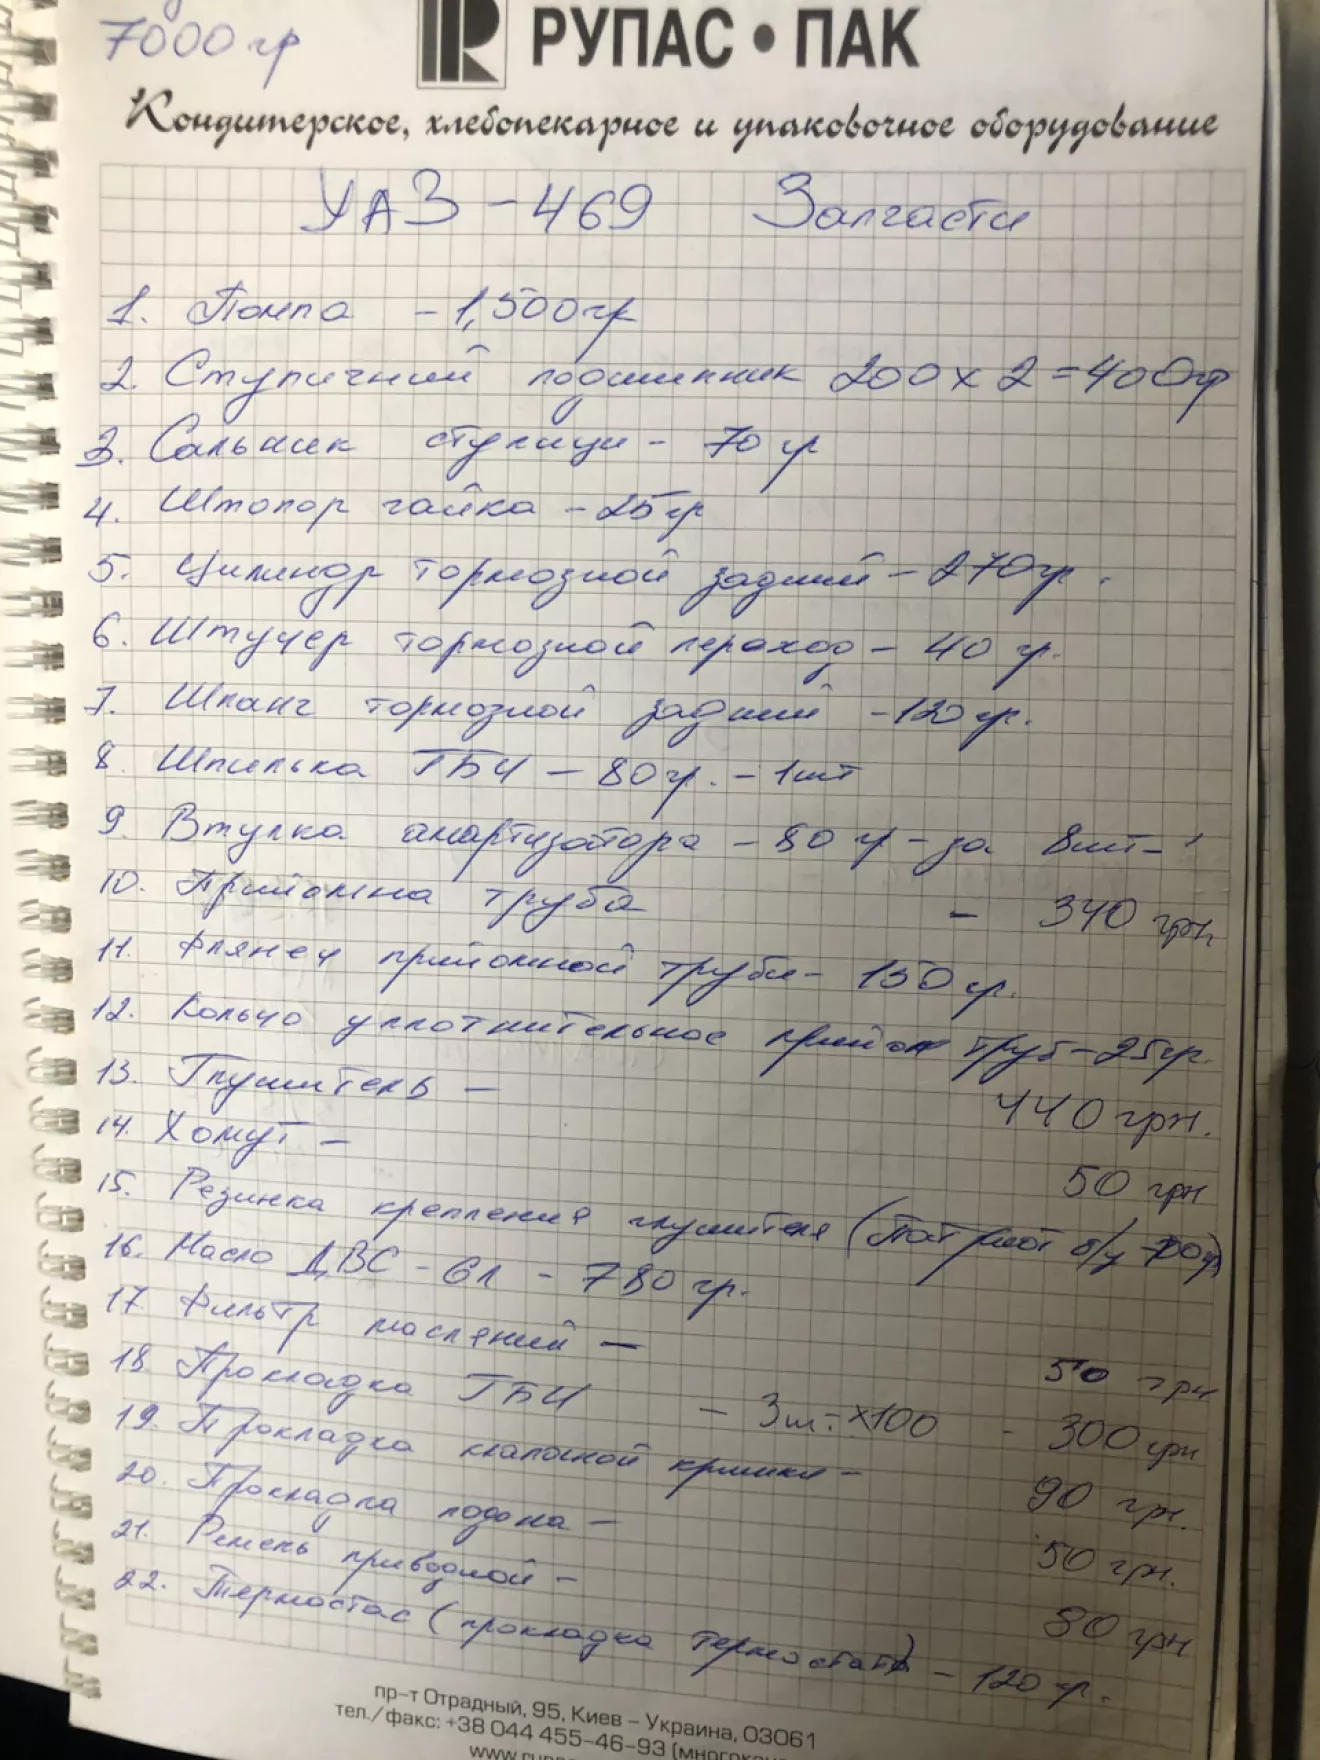 7000 гр
РУПАС • ПАК
Кондитерское, хлебопекарное и упаковочное оборудование
УАЗ-469 Запчасти
1. Помпа - 1,500гр
2. Ступичний подшипник 200 х 2 = 400гр
3. Сальник ступици - 70 гр
4. Штопор гайка - 25гр
5. Цилиндр тормозной задний - 270гр.
6. Штуцер тормозной пероход - 40 гр.
7. Шланг тормозной задний - 120гр.
8. Шпилька ГБЦ - 80гр. - 1шт
9. Втулка амартизатора - 80 гр - за 8шт-
10. Прийомна труба - 340 грн
11. Флянец прийомной труби - 150гр.
12. Кольцо уплотнительное прийом труб - 25гр.
13. Глушитель - 440 грн.
14. Хомут - 50 грн
15. Резинка крепления глушителя (Патриот б/у
16. Масло ДВС - 6л - 780 гр.
17. Фильтр масляний - 50 грн
18. Прокладка ГБЦ - 3шт. х100 - 300грн
19. Прокладка клапоной кришки - 90 грн.
20. Прокладка подона - 50 грн.
21. Ремень приводной - 80 грн
22. Термостас (прокладка термостата) - 120 гр.
пр-т Отрадный, 95, Киев - Украина, 03061
тел./факс: +38 044 455-46-93